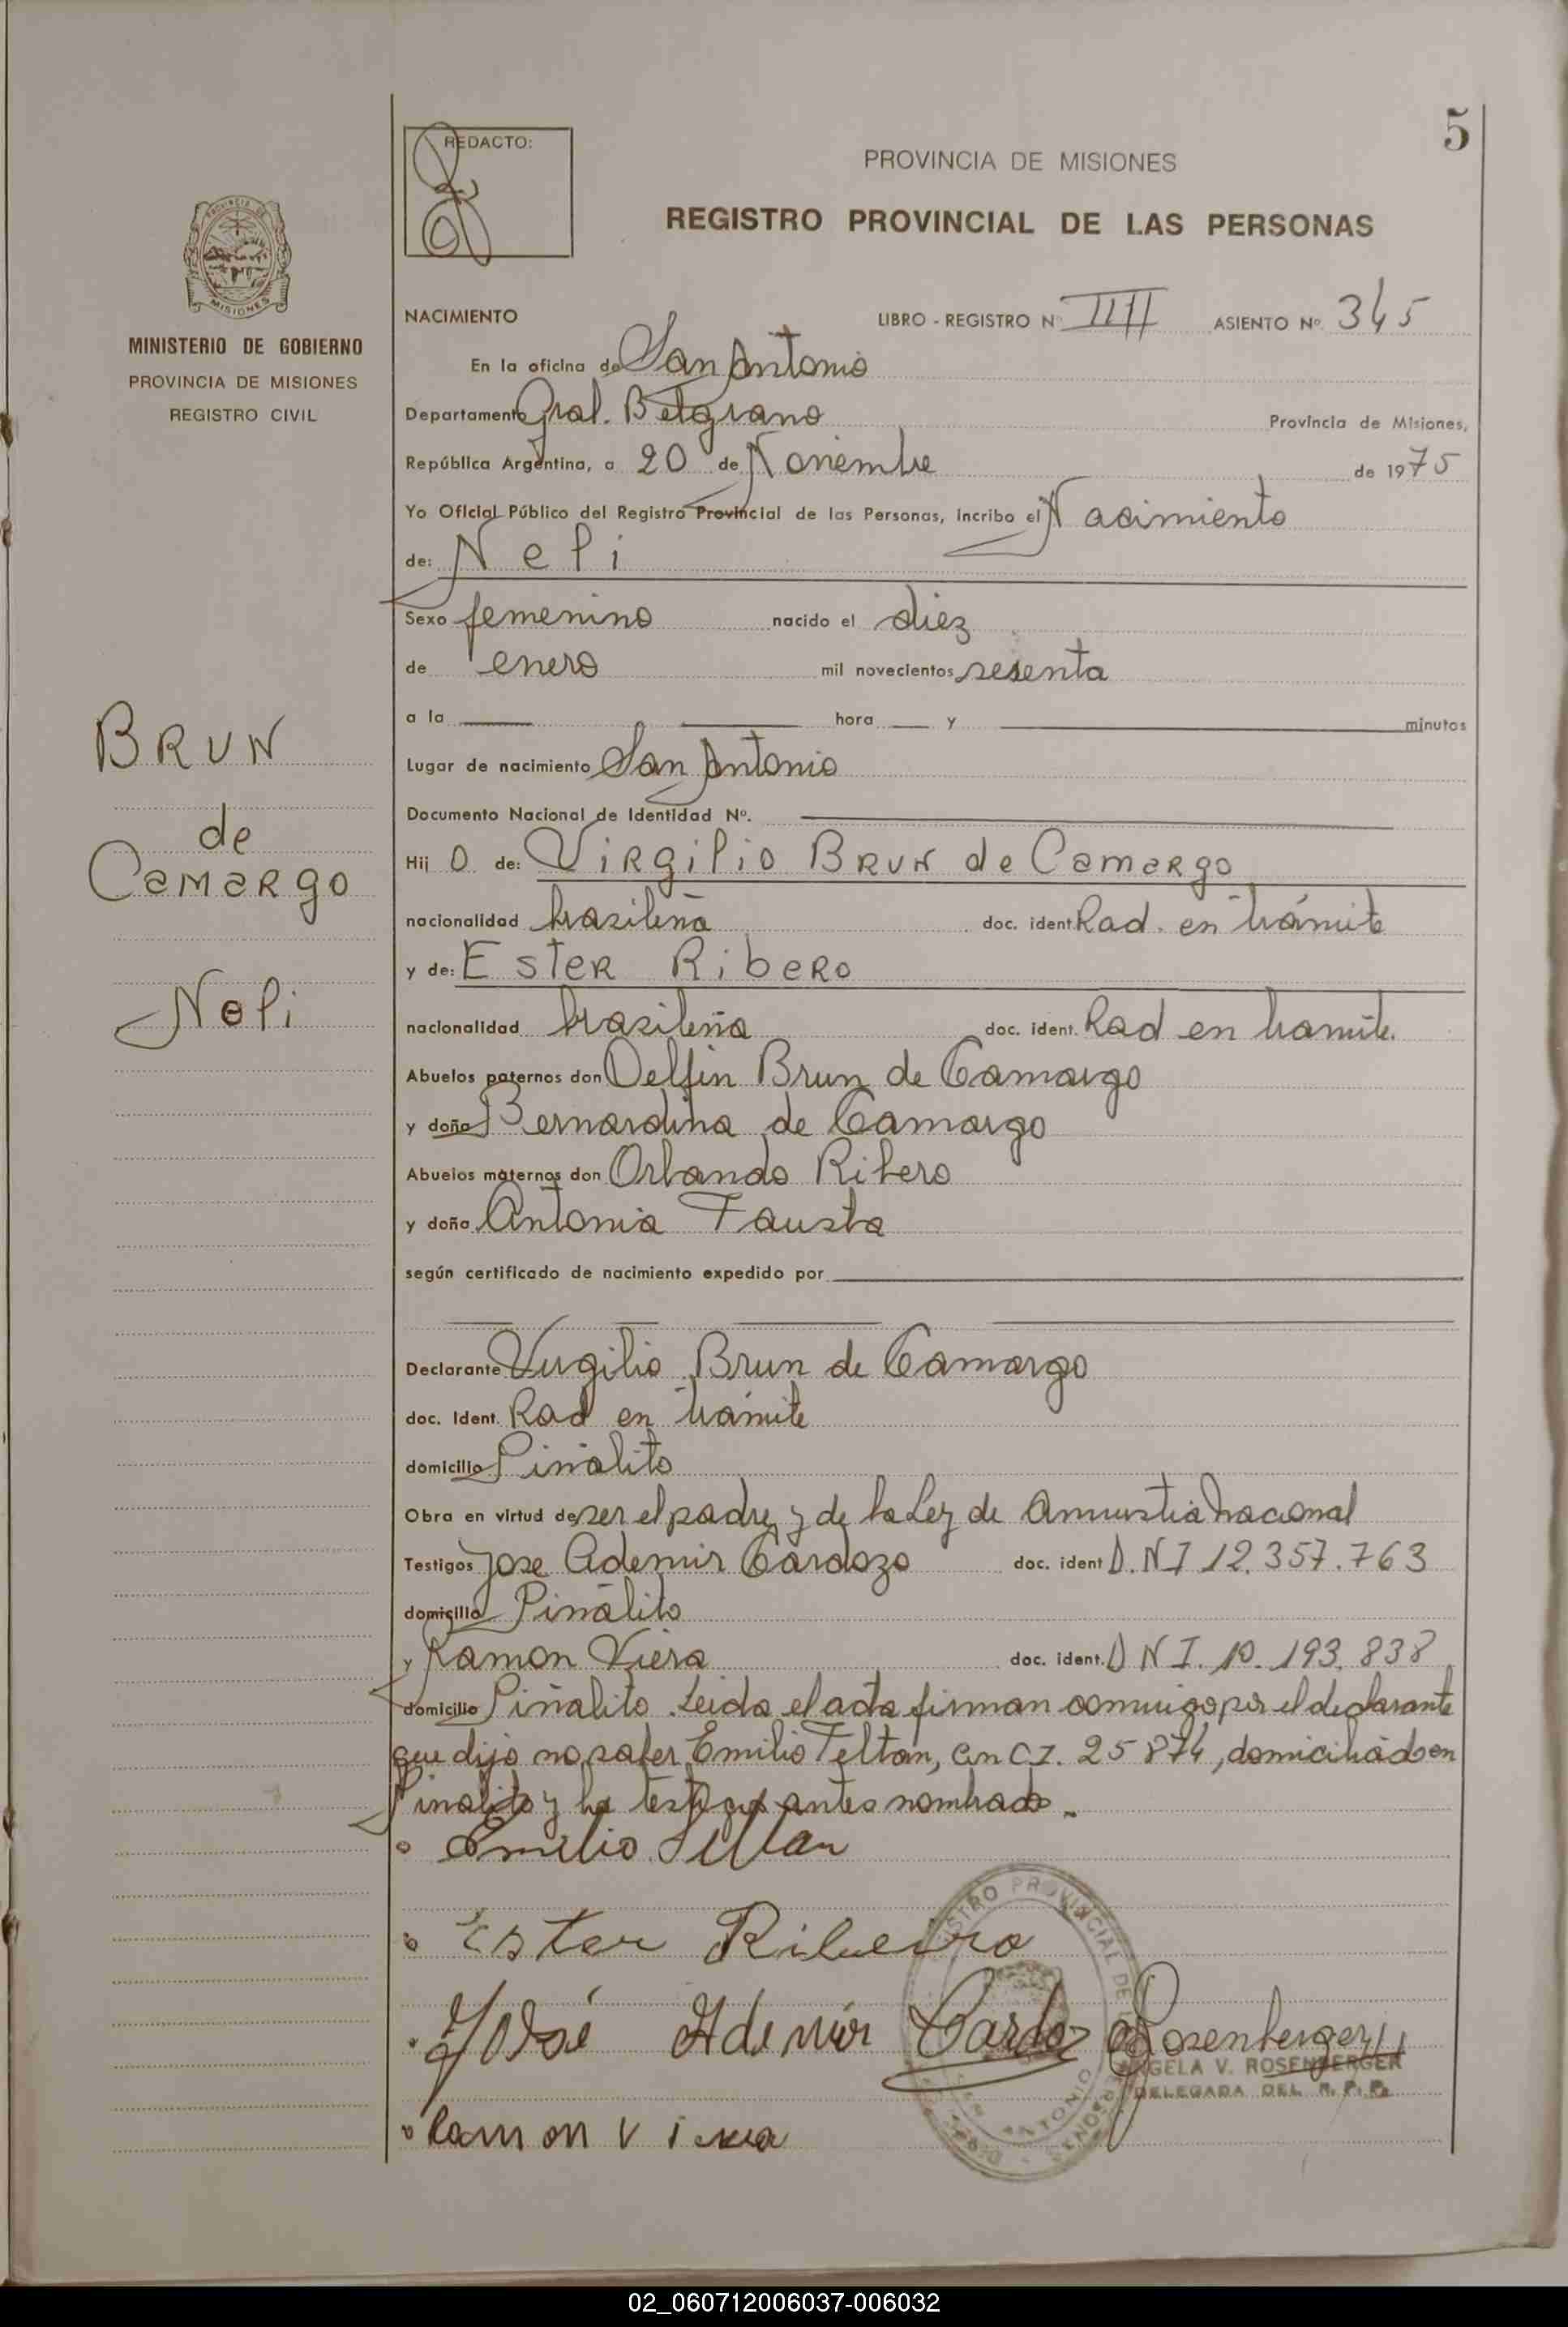 5
REDACTO:
PROVINCIA DE MISIONES
REGISTRO PROVINCIAL DE LAS PERSONAS
MISIONES
MINISTERIO DE GOBIERNO
PROVINCIA DE MISIONES
REGISTRO CIVIL
NACIMIENTO LIBRO - REGISTRO Nº IIII ASIENTO Nº 345
En la oficina de San Antonio
Departamento Gral. Belgrano Provincia de Misiones,
República Argentina, a 20 de Noviembre de 1975
Yo Oficial Público del Registro Provincial de las Personas, incribo el Nacimiento
de: Neli
Sexo femenino nacido el diez
de enero mil novecientos sesenta
a la hora y minutos
Lugar de nacimiento San Antonio
Documento Nacional de Identidad Nº.
Hij o de: Virgilio Brun de Camargo
nacionalidad brasileña doc. ident. Rad. en trámite
y de: Ester Ribero
nacionalidad brasileña doc. ident. Rad en tramite.
Abuelos paternos don Delfin Brun de Camargo
y doña Bernardina de Camargo
Abuelos maternos don Orlando Ribero
y doña Antonia Fausta
según certificado de nacimiento expedido por
Declarante Virgilio Brun de Camargo
doc. Ident. Rad en trámite
domicilio Piñalito
Obra en virtud de ser el padre y de la Ley de Amnistia Nacional
Testigos Jose Ademir Cardozo doc. ident D.N.I 12.357.763
domicilio Piñalito
y Ramon Viera doc. ident. D N I. 10.193.838
domicilio Piñalito. Leida el acta firman conmigo por el declarante
que dijo no saber Emilio Feltan, con C.I. 25874, domiciliado en
Piñalito y los testigos antes nombrados.
BRUN
de
Camargo
Neli
Emilio
Ester Ribeiro
José Ademir Cardoz
Rosenberger
ANGELA V. ROSENBERGER
DELEGADA DEL R. P. P.
Ramon Viera
REGISTRO PROVINCIAL DE LAS PERSONAS
SAN ANTONIO
02_060712006037-006032